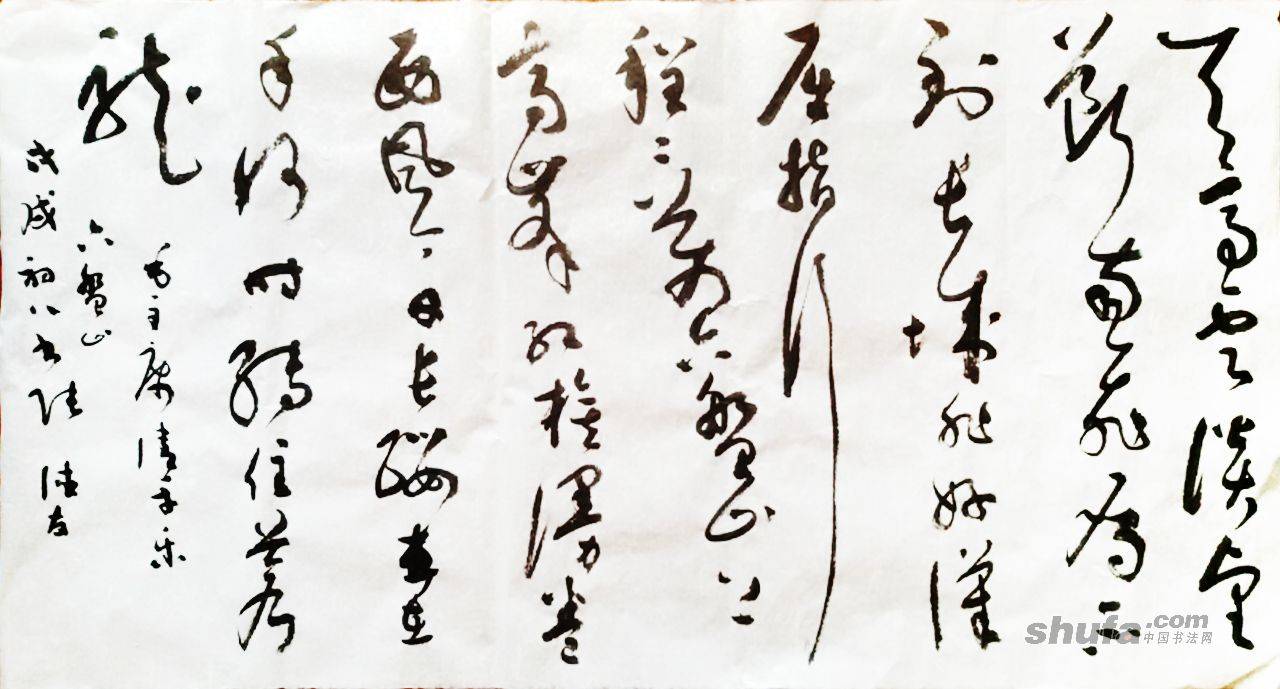 天高云淡望
断南飞雁不
到长城非好汉
屈指行
程二万六盘山上
高峰红旗漫卷
西风今日长缨在
手何时缚住苍
龙
毛主席清平乐
六盘山
戊戌初八书
shufa.com
中国书法网